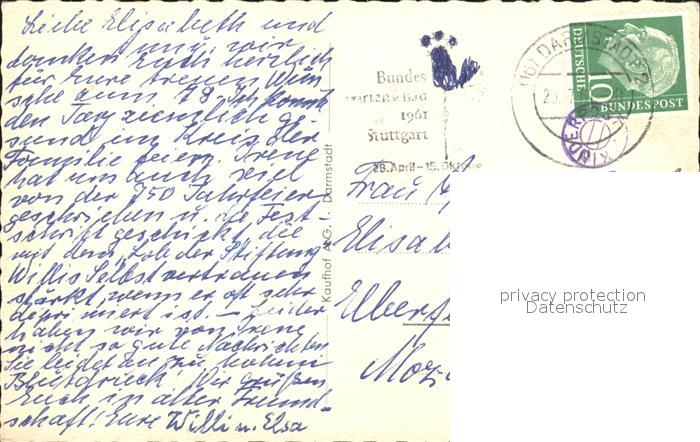 Liebe Elisabeth und
danken wir
Euch herzlich
für Eure treuen Wün-
sche zum 78. Ich konnte
den Tag ziemlich ge-
sund im Kreis der
Familie feiern. Irene
hat uns auch viel
von der 750 Jahrfeier
geschrieben u. die Fest-
schrift geschickt, die
mit dem Lob der Stiftung
Willis Selbstvertrauen
stärkt, wenn er oft sehr
deprimiert ist. – Leider
haben wir von Irene
nicht so gute Nachrichten
Sie leidet an zu hohem
Blutdruck. Wir grüßen
Euch in alter Freund-
schaft! Eure Willi u. Elsa
Kaufhof A.G. 1. Darmstadt
Bundes
gartenschau
1961
Stuttgart
28. April - 15. Oktober
(16) DARMSTADT 2
DEUTSCHE
BUNDESPOST
10
Frau
Elisa
Elberf
Moz
privacy protection
Datenschutz